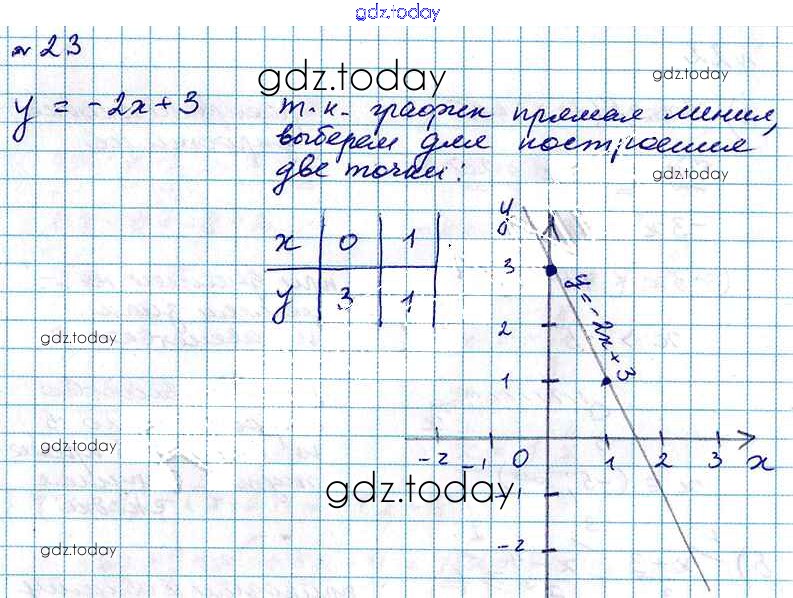 gdz.today
№ 23
gdz.today
gdz.today
y = -2x + 3
т.к. график прямая линия,
выберем для построения
две точки:
gdz.today
x 0 1
y 3 1
y
0
3
2
1
y = -2x + 3
gdz.today
gdz.today
-2 -1 0 1 2 3 x
gdz.today
-1
-2
gdz.today